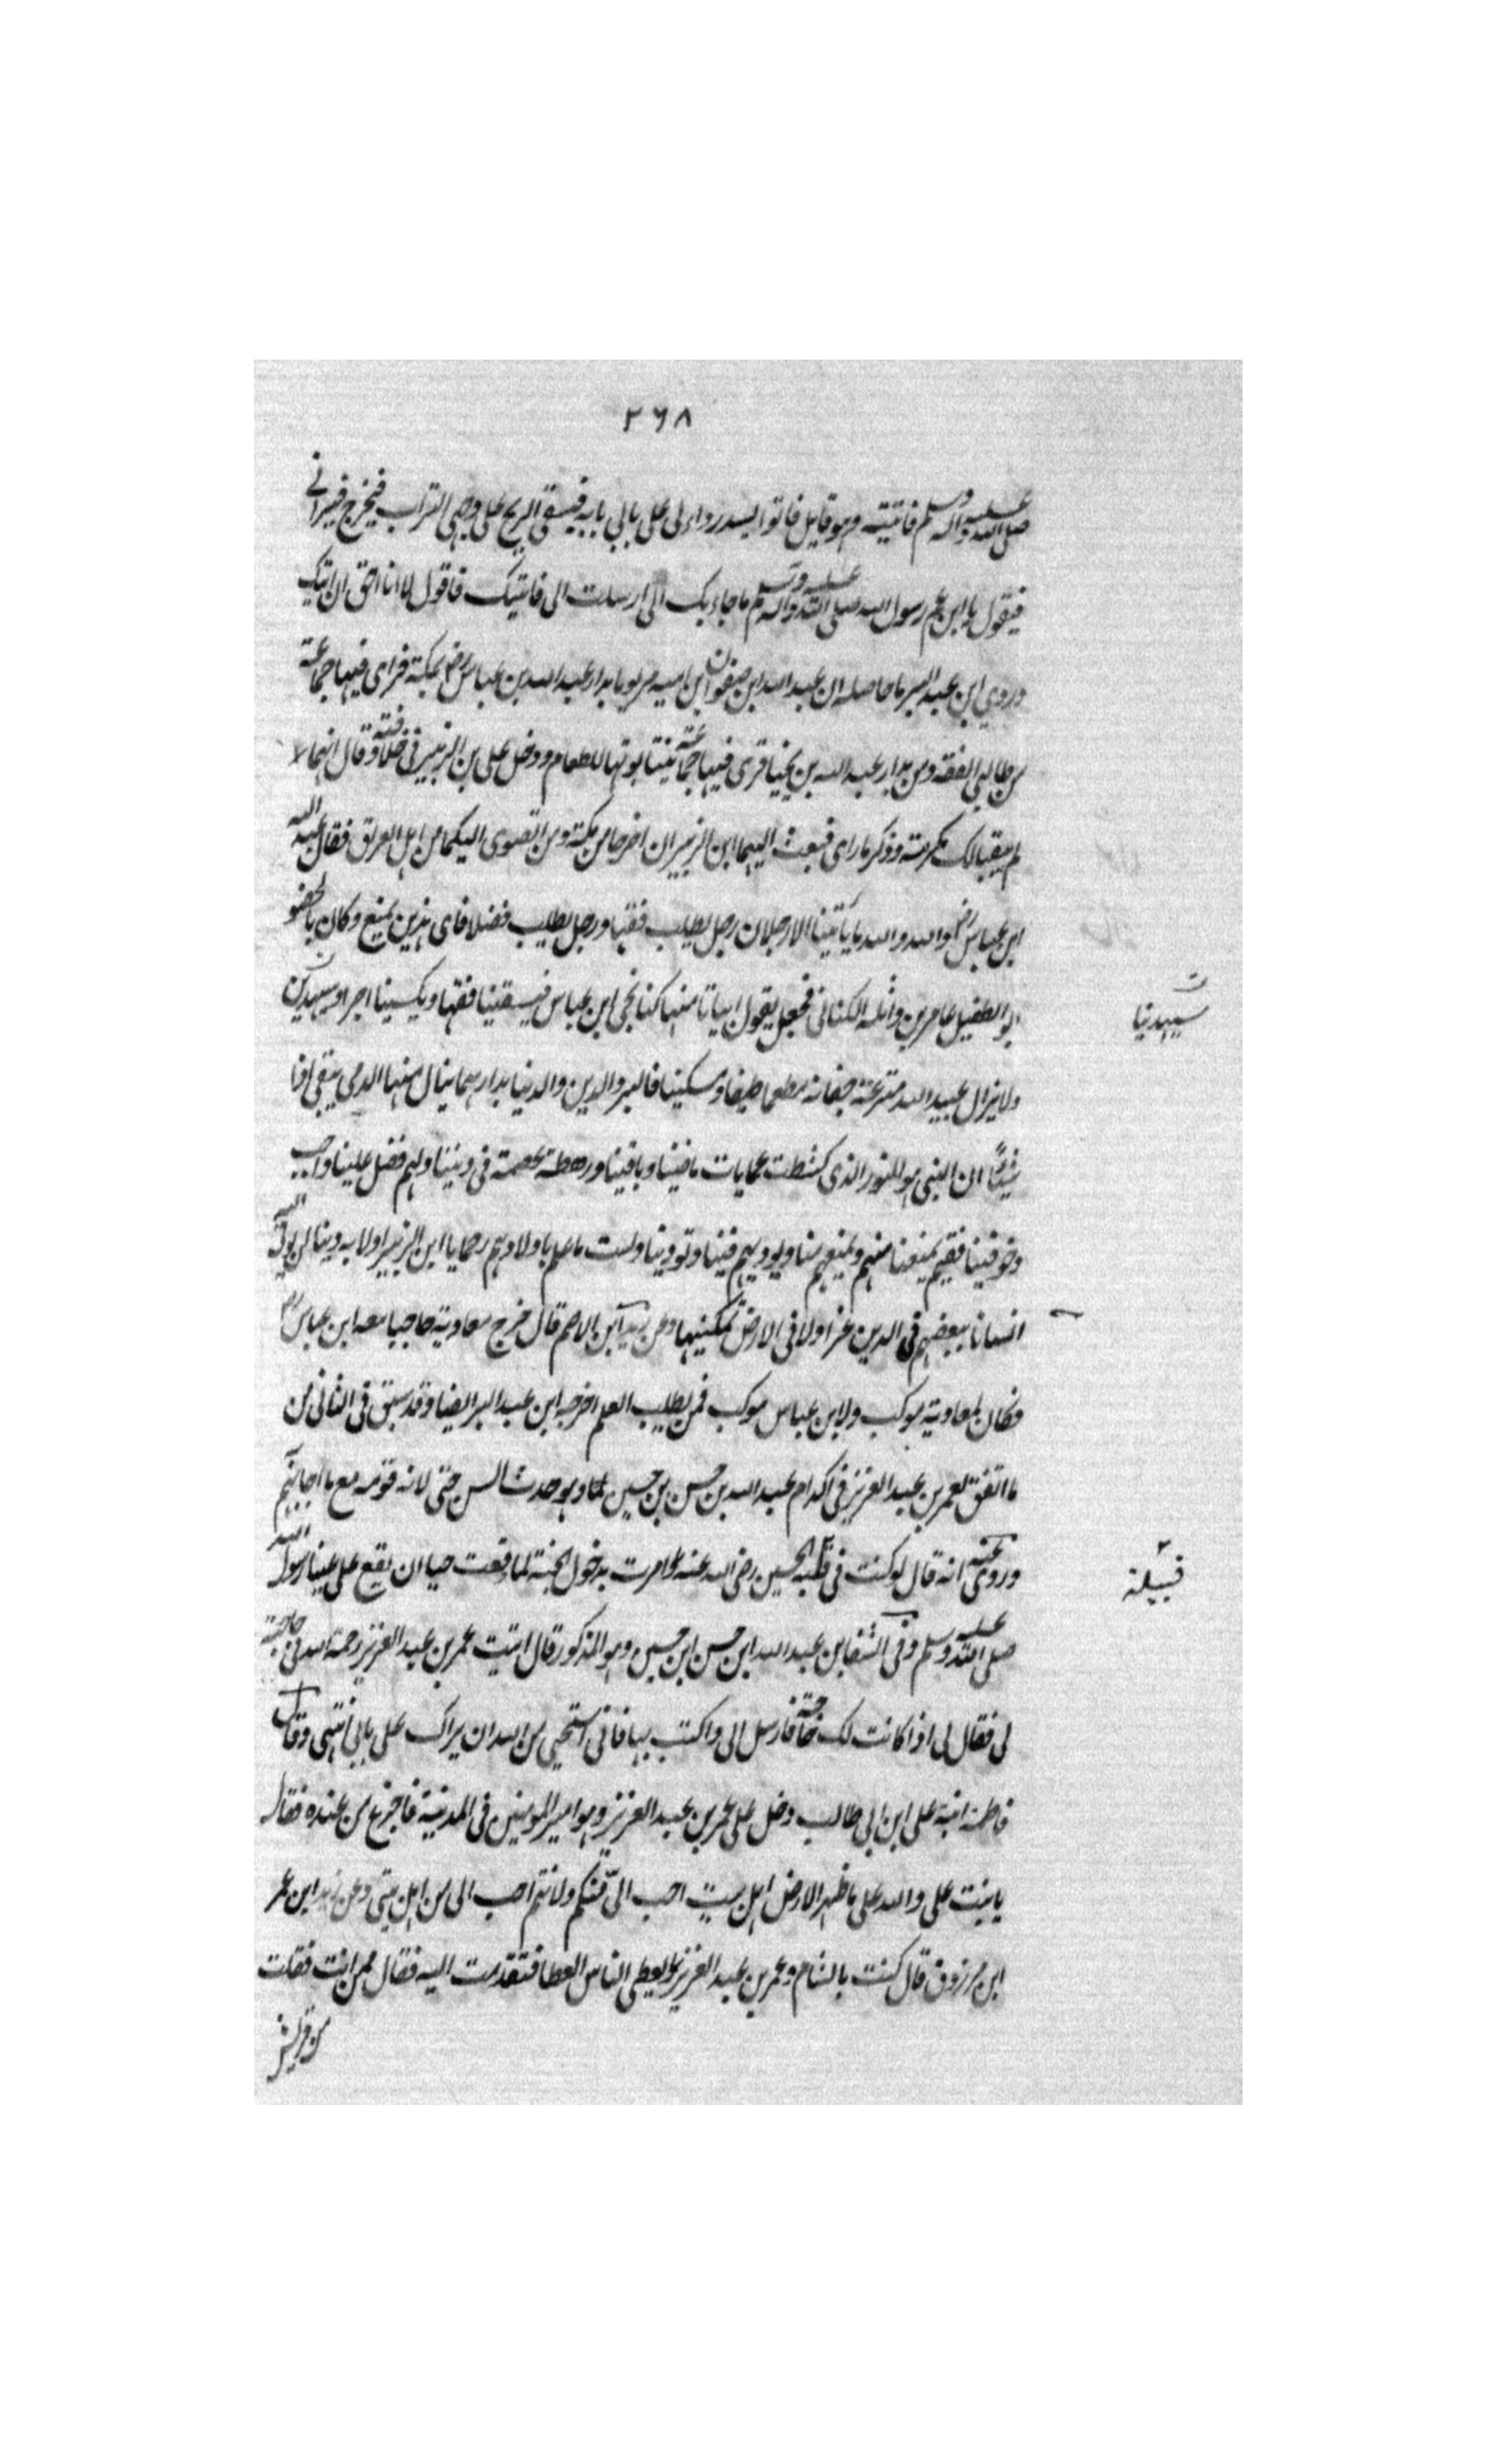 ٢٦٨
صلى الله عليه وآله وسلم فاتيته وهو قايل فاتوا ليسد رداءى على بابى بابه فيسقى الريح على وجهى التراب فيخرج فيرانى
فيقول يا ابن عم رسول الله صلى الله عليه وآله وسلم ما جاء بك الى ارسلت الى فاتيتك فاقول لا انا احق ان اتيك
وروى ابن عبد البر ما حاصله ان عبد الله ابن صفوان ابن اميه مر يوما بدار عبد الله بن عباس رض بمكة فراى فيها جماعة
من طالبى الفقه ومر بدار عبد الله بن فرى فيها جماعة ينتابونها للطعام ودخل على بن الزبير وقال انهما لا
لم يبقيا لك مكرمة وذكر ما راى فبعث اليهما ابن الزبير ان اخرجا من مكة ومن انضوى اليكما من اهل العراق فقال عبد الله
ابن عباس رض والله والله ما ياتينا الا رجلان رجل يطلب فقها ورجل يطلب فضلا فاى هذين يمنع وكان بالحضو
ابو الطفيل عامر بن واثلة الكنانى فجعل يقول ابياتا منها كنا نجى ابن عباس فيسقينا فقها ويكسبنا اجرا ويهدينا
ولا يزال عبيد الله مترعة جفانه مطعما ضيفا ومسكينا فالبر والدين والدنيا بدارهما ينال منها الدى يبقى اذا
شيئاً ان النبى هو النور الذى كشطت عمايات ماضينا وباقينا ورهطه عصمة فى ديننا ولهم فضل علينا واجب
وحق فينا ففيم يمنعنا منهم ويمنعهم منا ويوذيهم فينا وتوذينا ولست باولاهم رحما يا ابن الزبير ولا به دينا لن يوتى الله
انسانا ببعضهم فى الدين عزا ولا فى الارض تمكينها وعن زيد ابن الاصم قال خرج معاوية حاجيا معه ابن عباس رض
فكان لمعاوية موكب ولابن عباس موكب فمن يطلب العلم اخرجه ابن عبد البر ايضا وقد سبق فى الثانى من
ما اتفق لعمر بن عبد العزيز فى اكرام عبد الله بن حسن بن حسين وهو حدث السن حتى لانه قومه مع ما اجابهم
وروى عنه انه قال لو كنت فى قتلة الحسين رضى الله عنه وامرت بدخول الجنة لما دخلت حيا ان يقع على عينا رسول الله
صلى الله عليه وسلم وفى الشفا بن عبد الله ابن حسن ابن حسين وهو المذكور قال اتيت عمر بن عبد العزيز رحمة الله فى حاجته
لى فقال لى اذا كانت لك حاجة فارسل الى واكتب بها فانى استحيى من الله ان يراك على بابى انتهى وقالت
فاطمة ابنة على ابن ابى طالب دخل على عمر بن عبد العزيز وهو امير المومنين فى المدينة فاخرج من عنده فقال
يا بنت على والله على ما ظهر الارض اهل بيت احب الىّ منكم ولانتم احب الى من اهل بيتى وعن زيد ابن عمر
ابن مرزوق قال كنت بالشام وعمر بن عبد العزيز يعطى الناس العطا فتقدمت اليه فقال ممن انت فقلت
من قريش
ت
سيهدينا
قبيلة